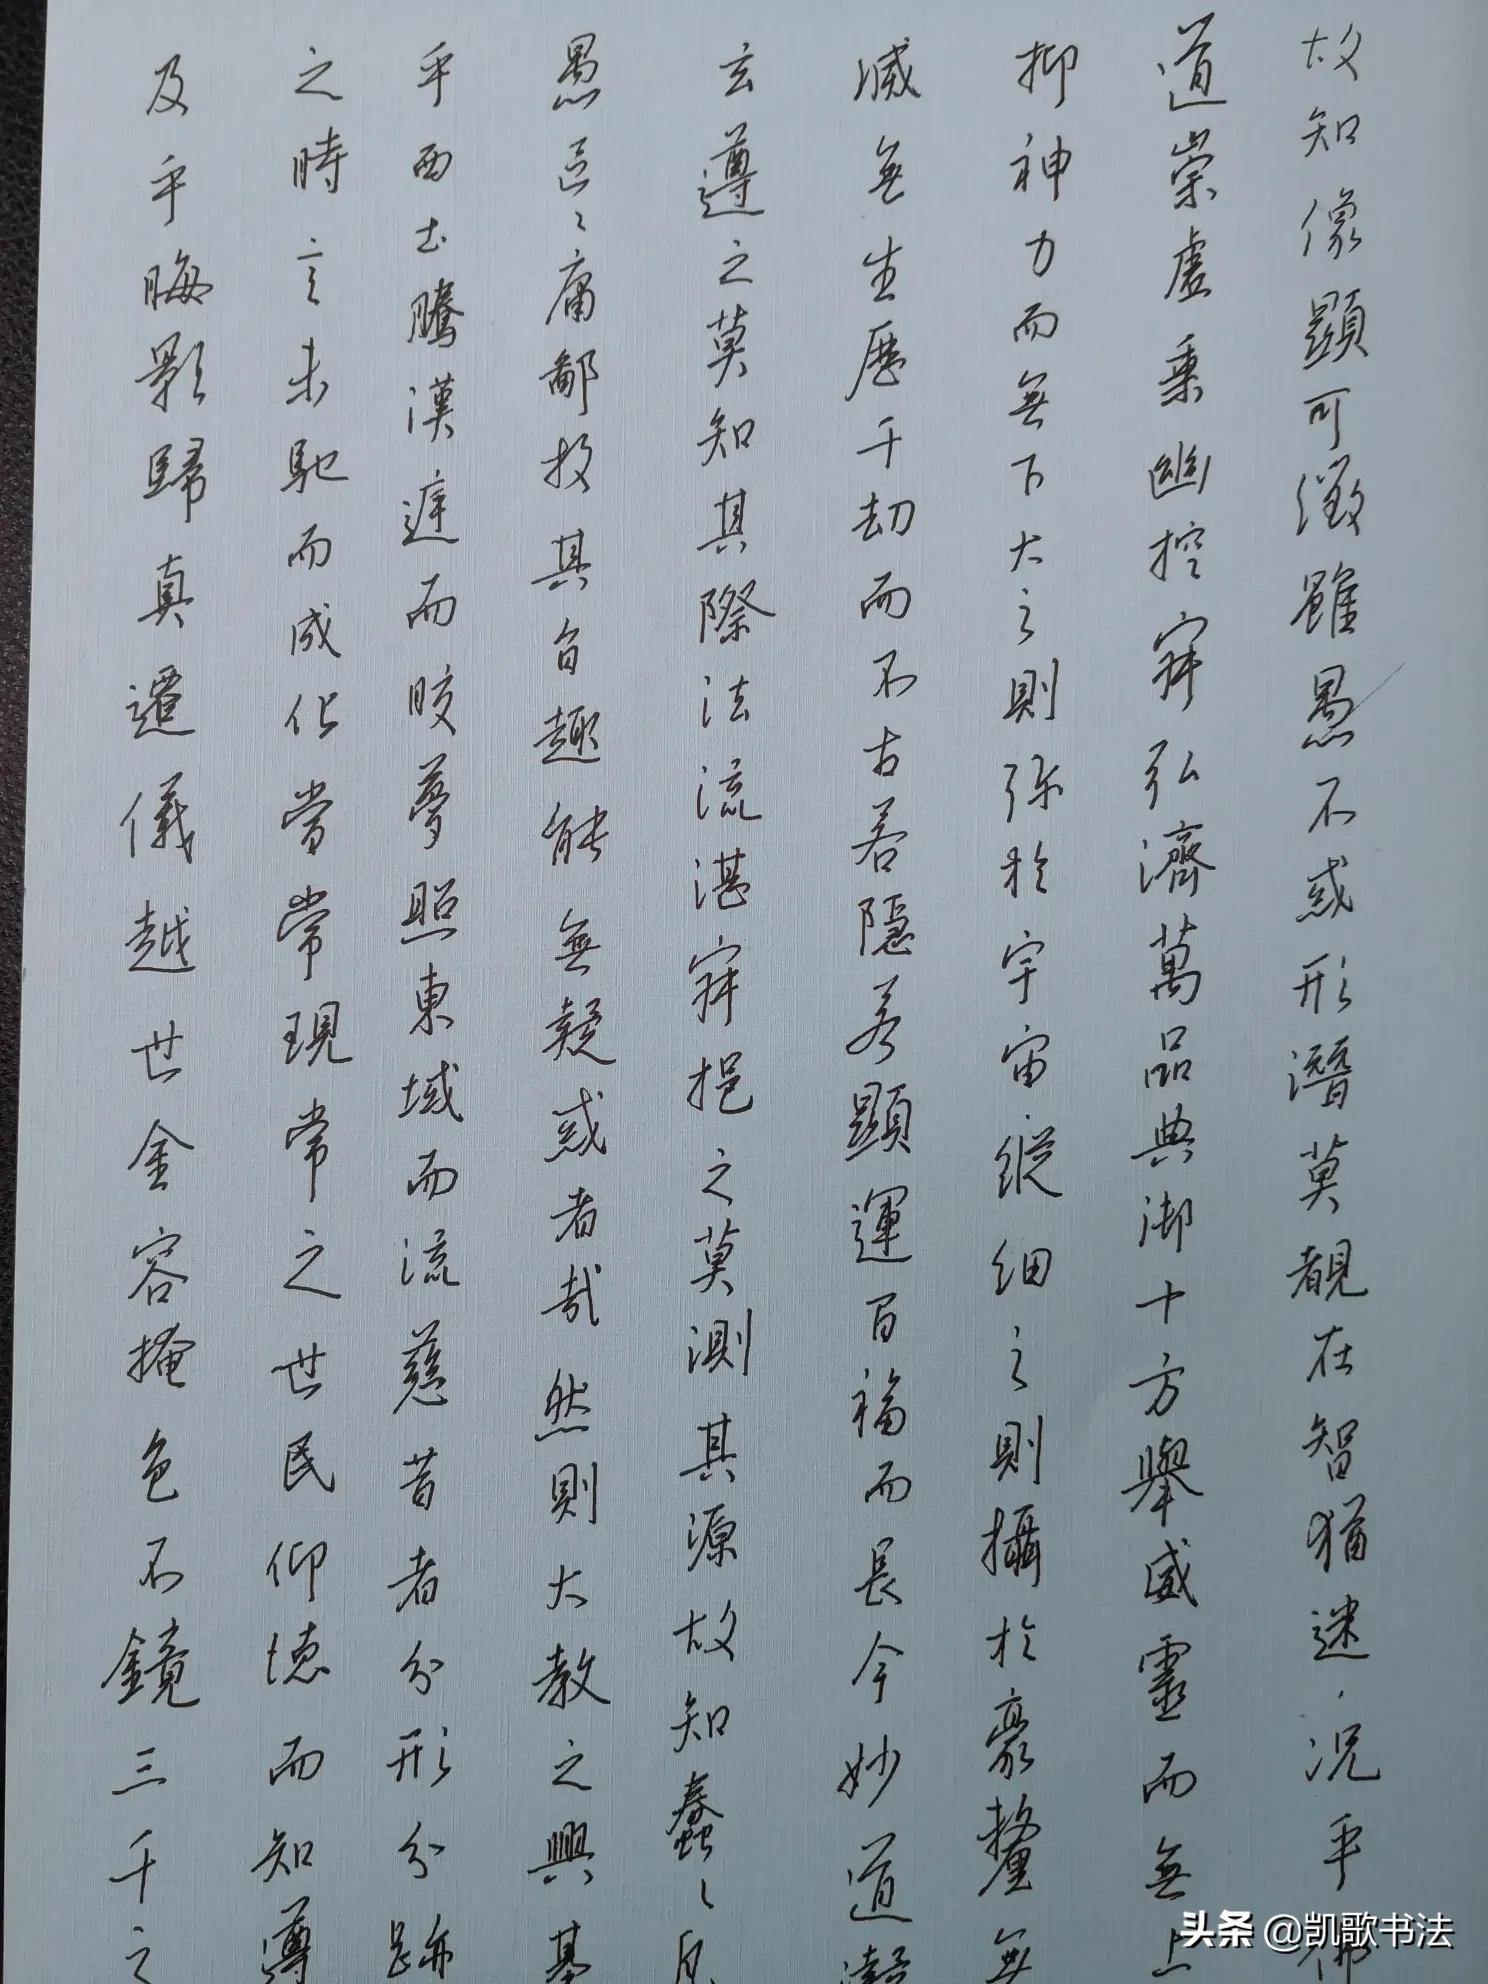 故知像顯可徵雖愚不惑形潛莫覩在智猶迷况乎佛
道崇虛乘幽控寂弘濟萬品典御十方舉威靈而無上
抑神力而無下大之則弥於宇宙縱細之則攝於豪釐無
滅無生歷千劫而不古若隱若顯運百福而長今妙道凝
玄遵之莫知其際法流湛寂挹之莫測其源故知蠢〻凡
愚區〻庸鄙投其旨趣能無疑惑者哉然則大教之興基
乎西土騰漢庭而皎夢照東域而流慈昔者分形分跡
之時言未馳而成化當常現常之世民仰德而知遵
及乎晦影歸真遷儀越世金容掩色不鏡三千之
头条 @凯歌书法